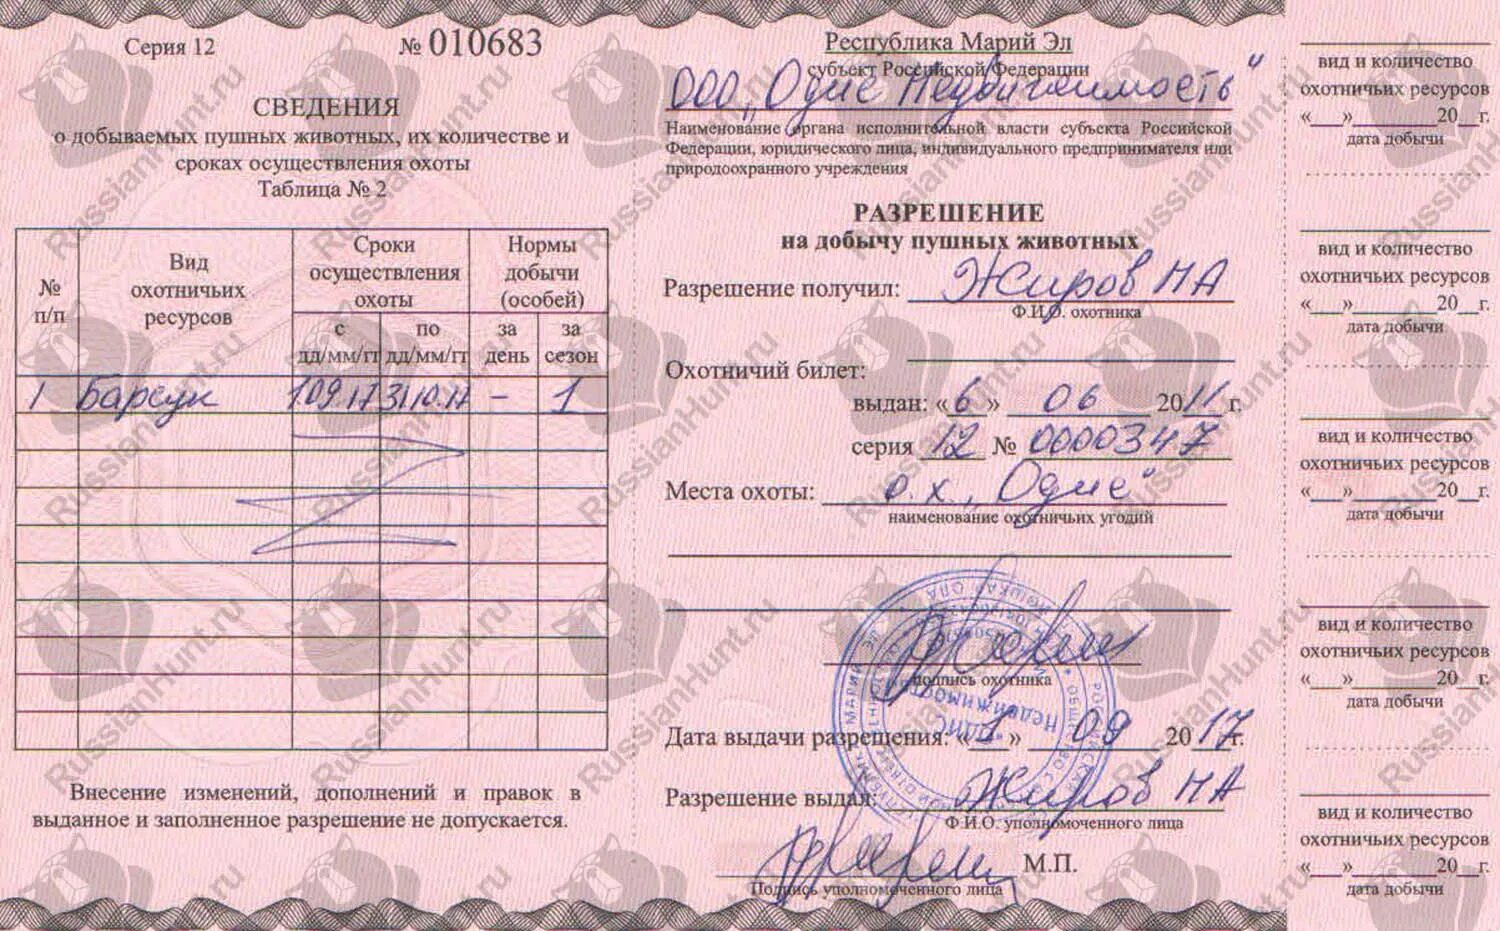 Серия 12 № 010683
СВЕДЕНИЯ
о добываемых пушных животных, их количестве и
сроках осуществления охоты
Таблица № 2
№ п/п
Вид охотничьих ресурсов
Сроки осуществления охоты
Нормы добычи (особей)
с дд/мм/гг
по дд/мм/гг
за день
за сезон
1 Барсук 1 09.17 31.10.17 - 1
Внесение изменений, дополнений и правок в
выданное и заполненное разрешение не допускается.
Республика Марий Эл
субъект Российской Федерации
ООО „Одис Недвижимость"
Наименование органа исполнительной власти субъекта Российской
Федерации, юридического лица, индивидуального предпринимателя или
природоохранного учреждения
РАЗРЕШЕНИЕ
на добычу пушных животных
Разрешение получил: Жиров НА
Ф.И.О. охотника
Охотничий билет:
выдан: «6» 06 2011 г.
серия 12 № 0000347
Места охоты: о.х. „Одис"
наименование охотничьих угодий
подпись охотника
Дата выдачи разрешения: «1» 09 2017г.
Разрешение выдал: Жиров НА
Ф.И.О. уполномоченного лица
М.П.
Подпись уполномоченного лица
вид и количество
охотничьих ресурсов
«___»________20__г.
дата добычи
вид и количество
охотничьих ресурсов
«___»________20__г.
дата добычи
вид и количество
охотничьих ресурсов
«___»________20__г.
дата добычи
вид и количество
охотничьих ресурсов
«___»________20__г.
дата добычи
вид и количество
охотничьих ресурсов
«___»________20__г.
дата добычи
RussianHunt.ru